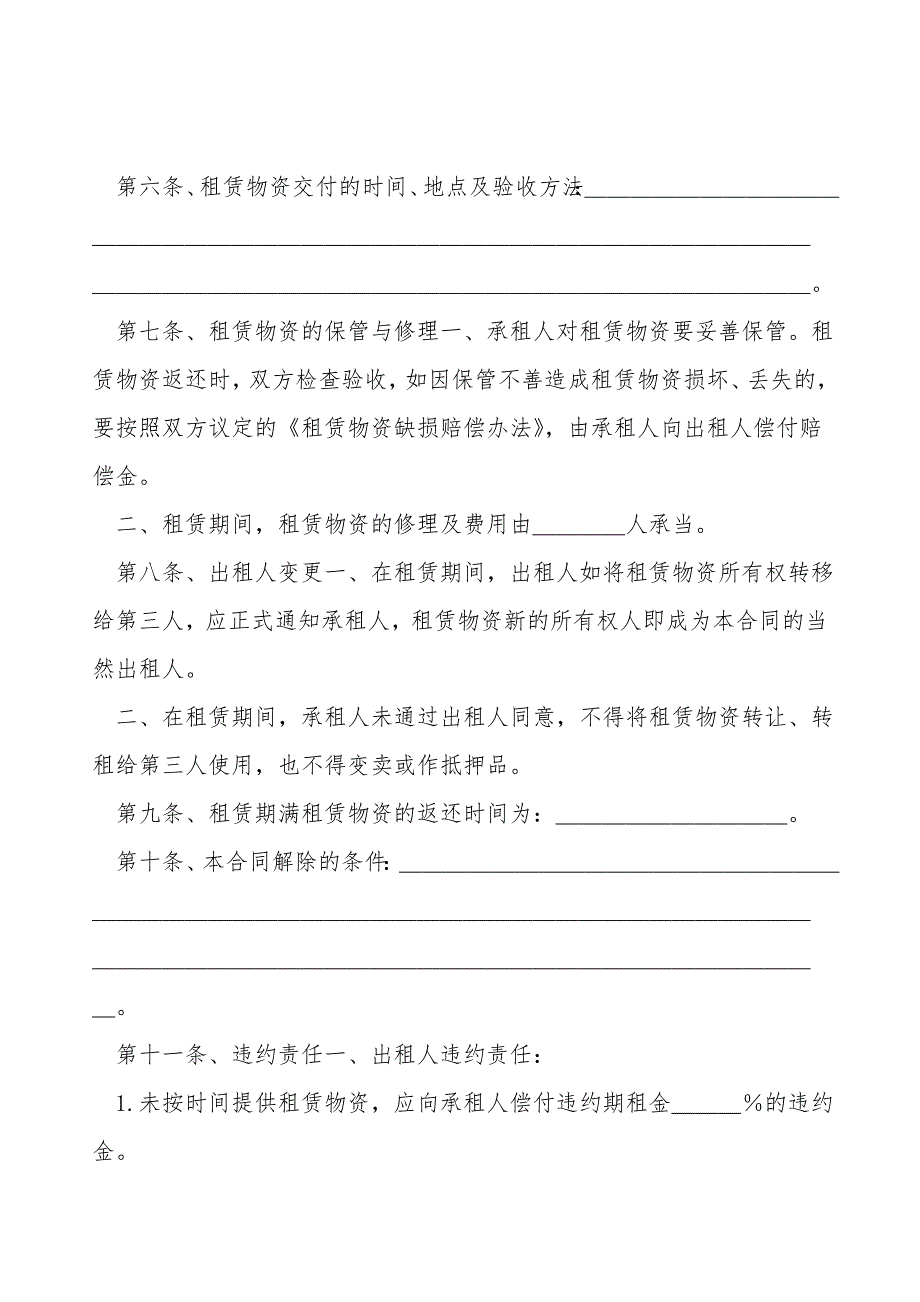 第六条、租赁物资交付的时间、地点及验收方法:______________________
______________________________________________________________
______________________________________________________________。
第七条、租赁物资的保管与修理一、承租人对租赁物资要妥善保管。租
赁物资返还时，双方检查验收，如因保管不善造成租赁物资损坏、丢失的，
要按照双方议定的《租赁物资缺损赔偿办法》，由承租人向出租人偿付赔
偿金。
二、租赁期间，租赁物资的修理及费用由________人承当。
第八条、出租人变更一、在租赁期间，出租人如将租赁物资所有权转移
给第三人，应正式通知承租人，租赁物资新的所有权人即成为本合同的当
然出租人。
二、在租赁期间，承租人未通过出租人同意，不得将租赁物资转让、转
租给第三人使用，也不得变卖或作抵押品。
第九条、租赁期满租赁物资的返还时间为：____________________。
第十条、本合同解除的条件：______________________________________
______________________________________________________________
______________________________________________________________
__。
第十一条、违约责任一、出租人违约责任：
1.未按时间提供租赁物资，应向承租人偿付违约期租金______％的违约
金。